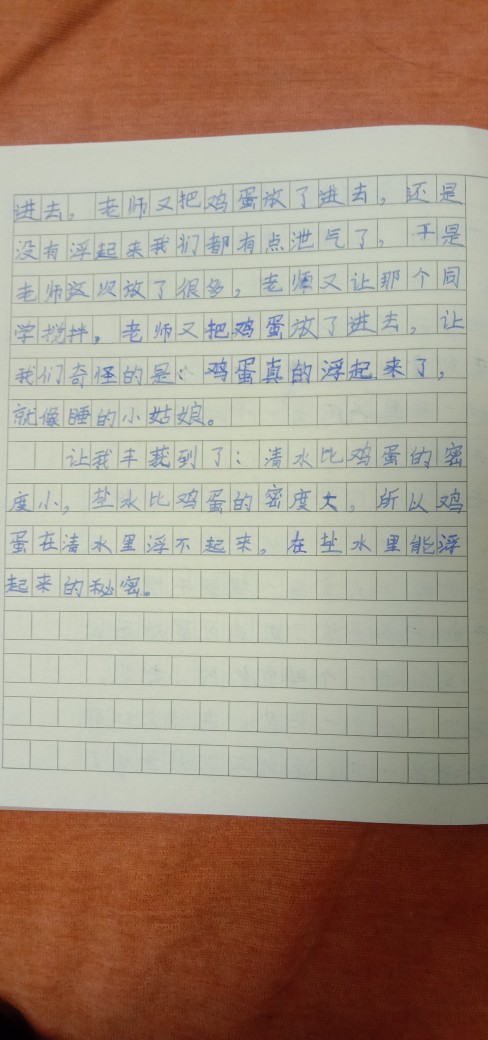 进去，老师又把鸡蛋放了进去，还是
没有浮起来我们都有点泄气了，于是
老师这次放了很多，老师又让那个同
学搅拌，老师又把鸡蛋放了进去，让
我们奇怪的是：鸡蛋真的浮起来了，
就像睡的小姑娘。
让我丰载到了：清水比鸡蛋的密
度小，盐水比鸡蛋的密度大，所以鸡
蛋在清水里浮不起来，在盐水里能浮
起来的秘密。